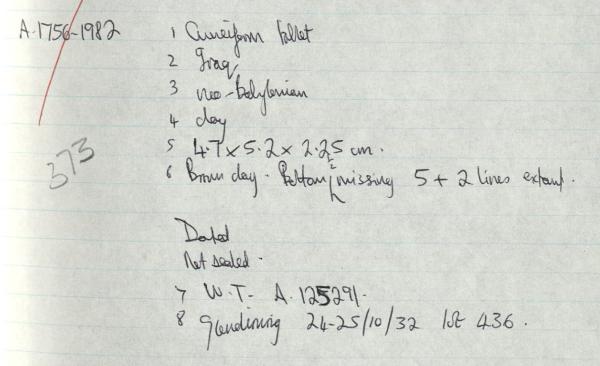 A.1756-1982 1 Cuneiform tablet
2 Iraq
3 neo-Babylonian
4 clay
5 4.7 x 5.2 x 2.25 cm.
373
6 Brown clay. Bottom ½ missing 5 + 2 lines extant.
Dated
Not sealed.
7 W.T- A.125291.
8 Glendining 24-25/10/32 lot 436.